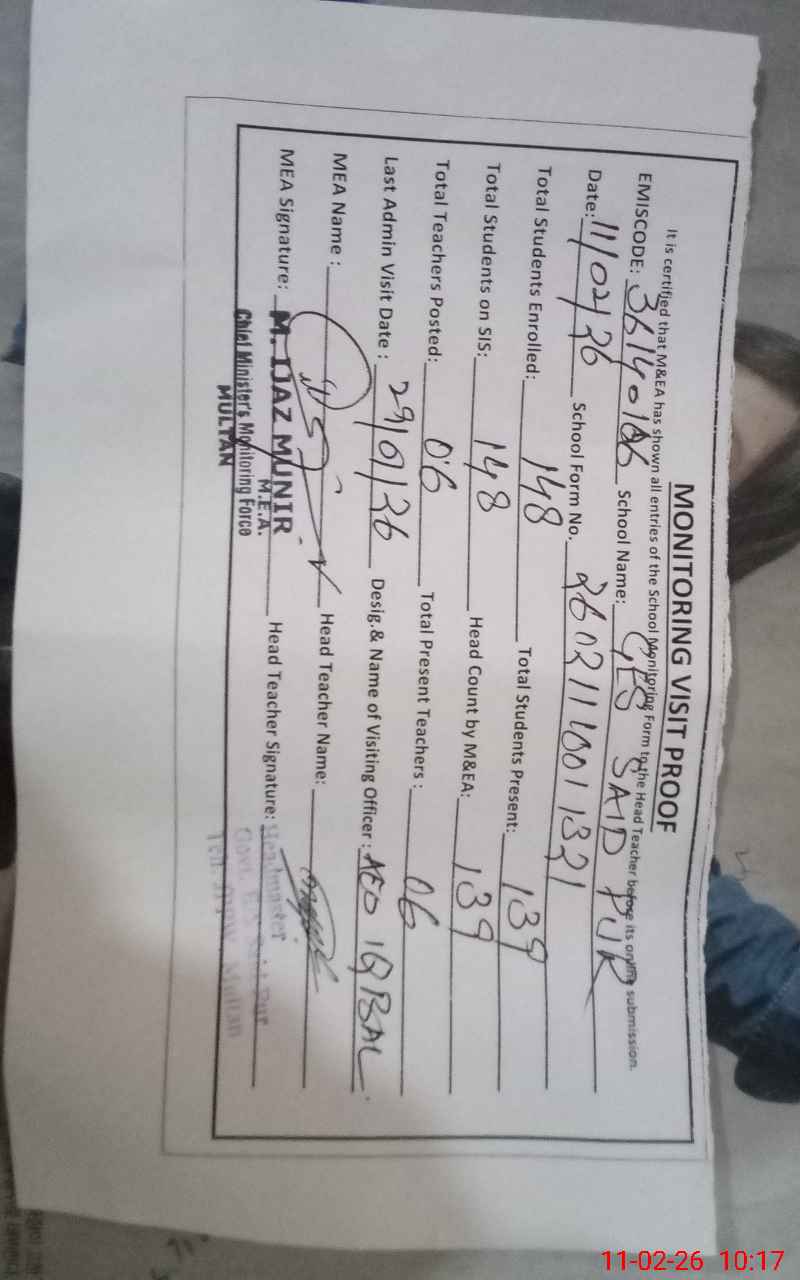 MONITORING VISIT PROOF
It is certified that M&EA has shown all entries of the School Monitoring Form to the Head Teacher before its online submission.
EMISCODE: 36140166 School Name: GES SAID PUR
Date: 11/02/26 School Form No. 2602111001321
Total Students Enrolled: 148 Total Students Present: 139
Total Students on SIS: 148 Head Count by M&EA: 139
Total Teachers Posted: 06 Total Present Teachers : 06
Last Admin Visit Date : 29/01/26 Desig.& Name of Visiting Officer : AEO IQBAL
MEA Name : Head Teacher Name:
MEA Signature: M. IJAZ MUNIR Head Teacher Signature: Headmaster
M.E.A.
Chief Minister's Monitoring Force
MULTAN
Multan
11-02-26 10:17